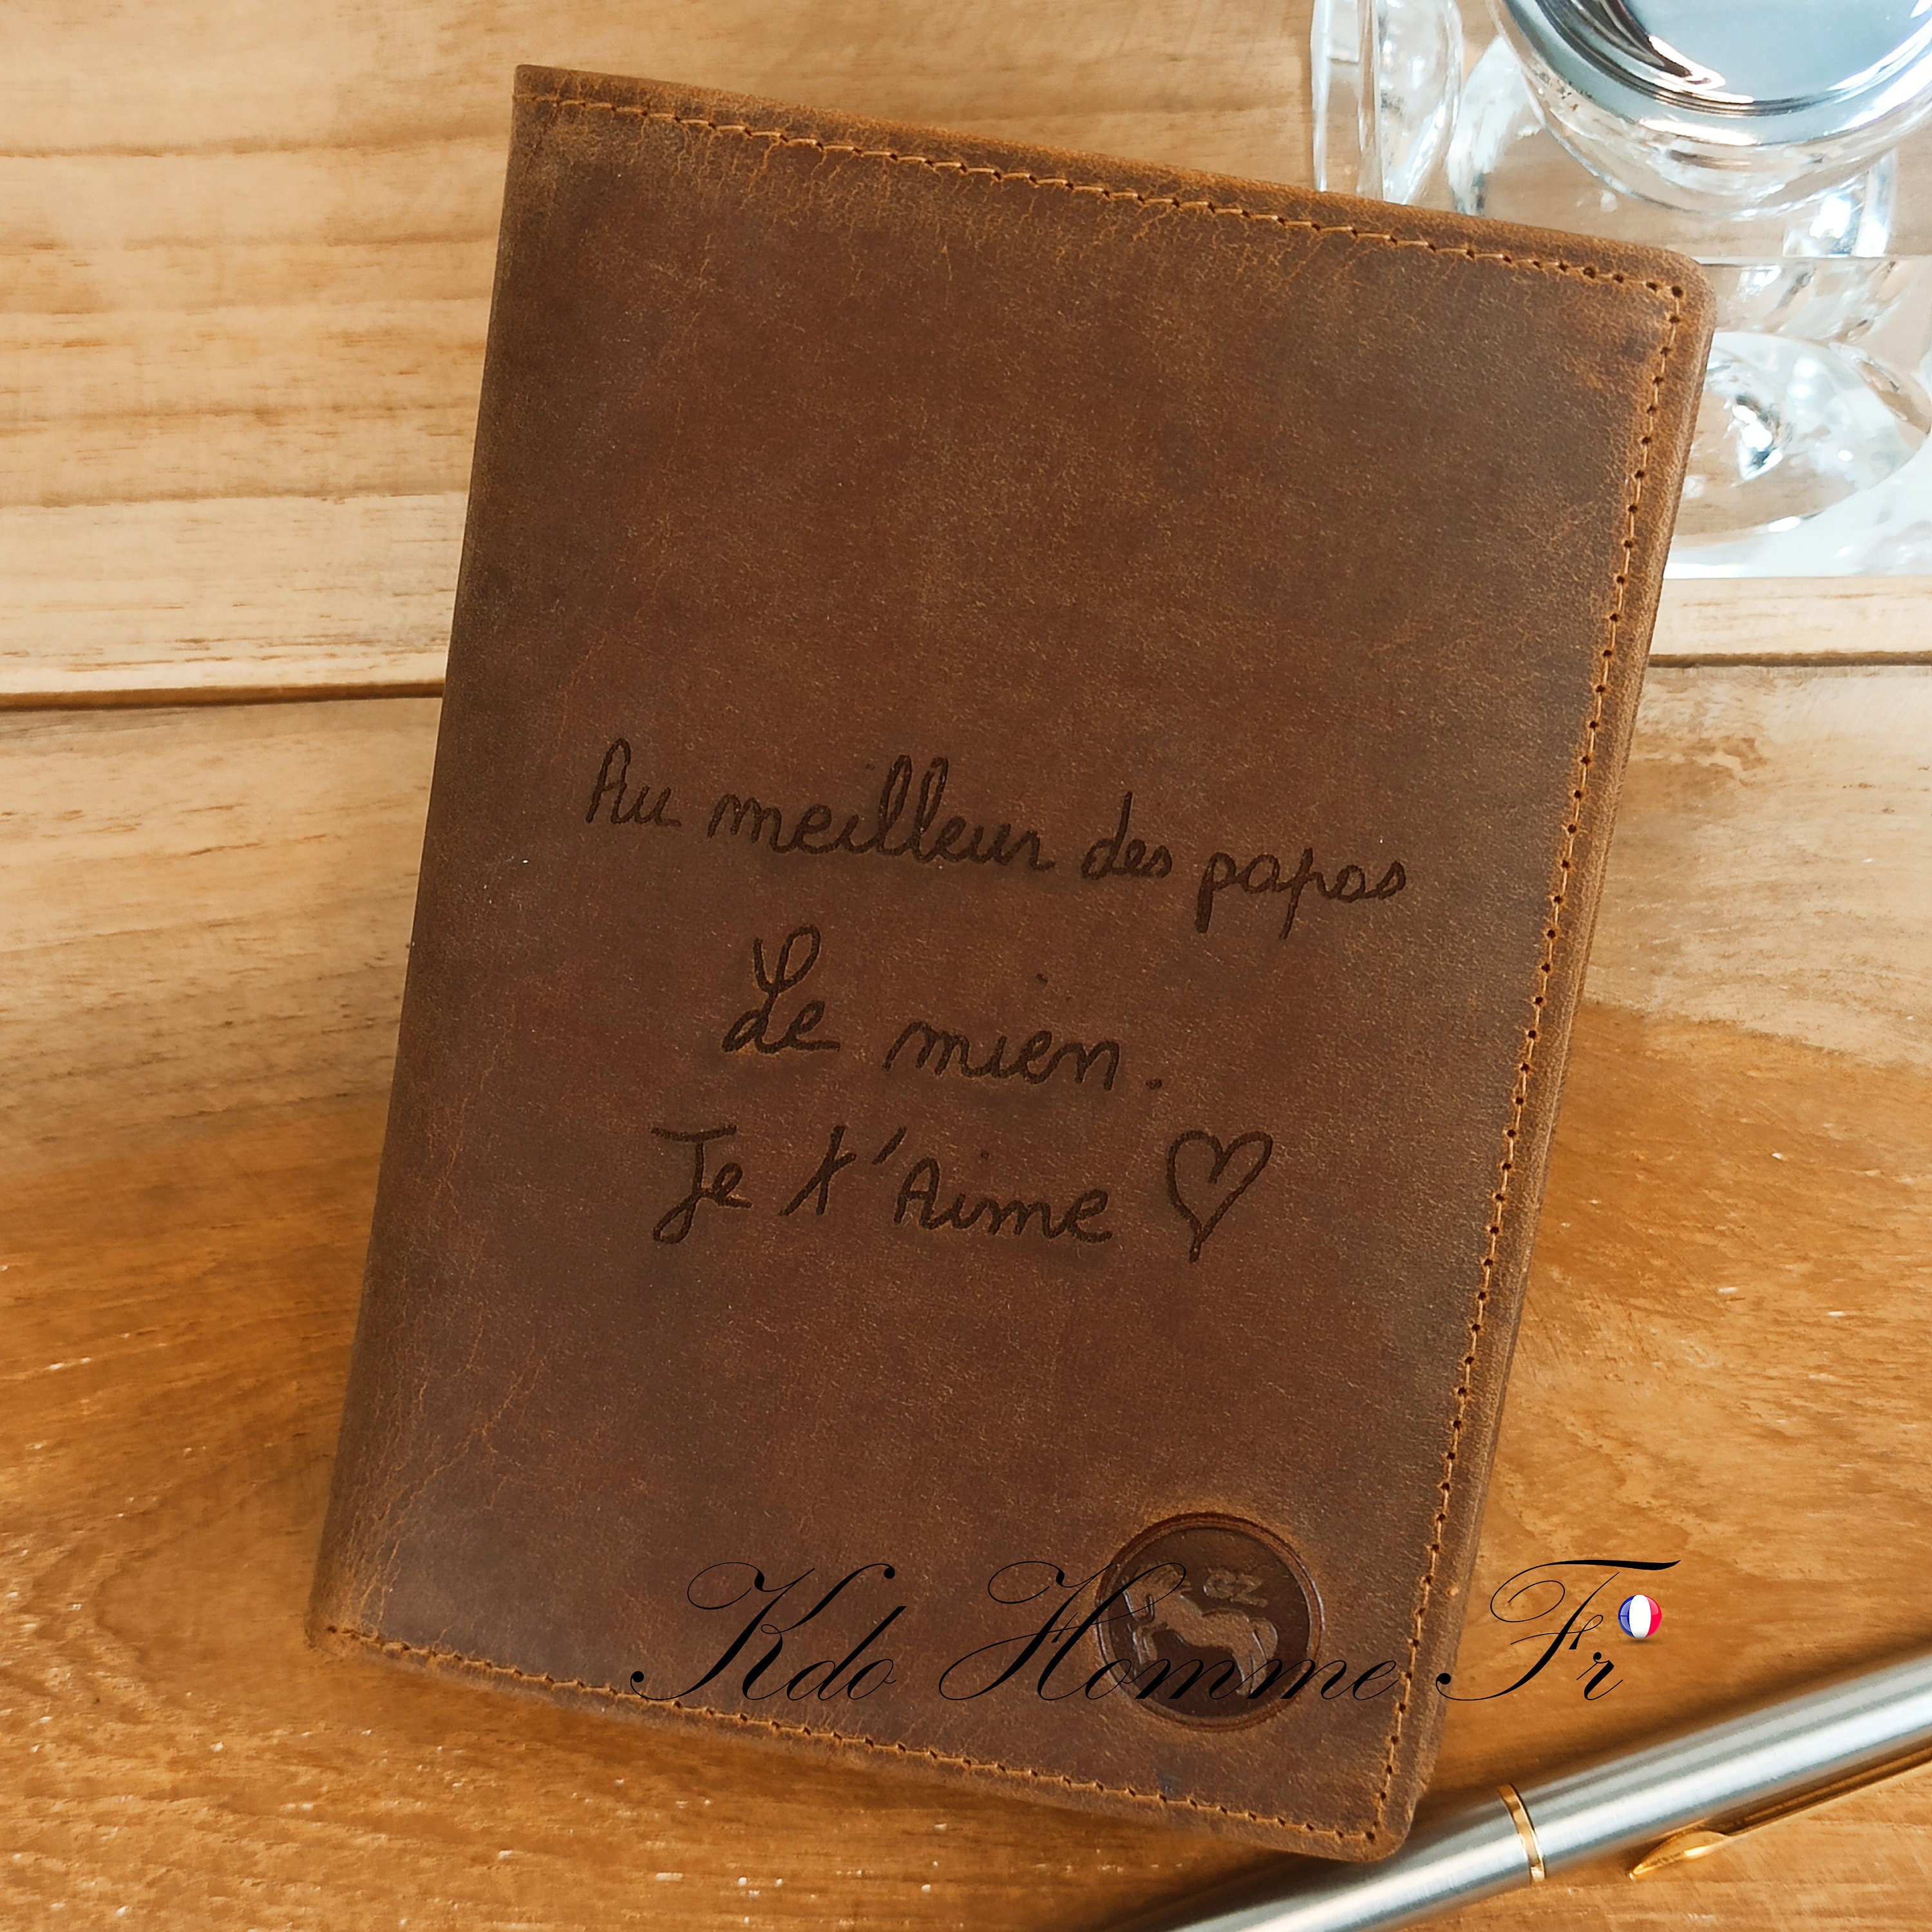 Au meilleur des papas
Le mien.
Je t'Aime ♡
GZ
Kdo Homme Fr